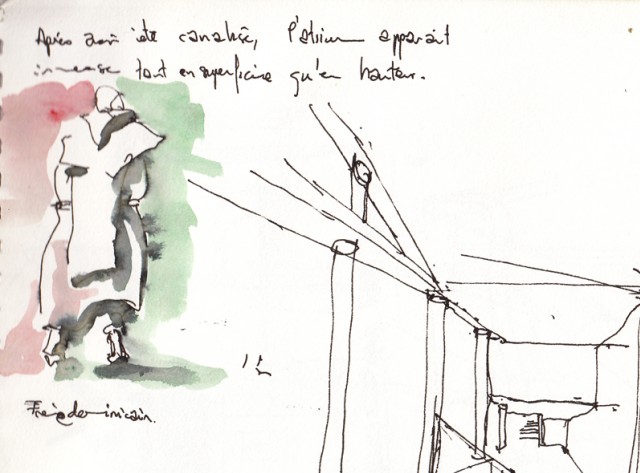 Après avoir été canalisé, l'atrium apparait
immense tant en superficie qu'en hauteur.
Frère dominicain.